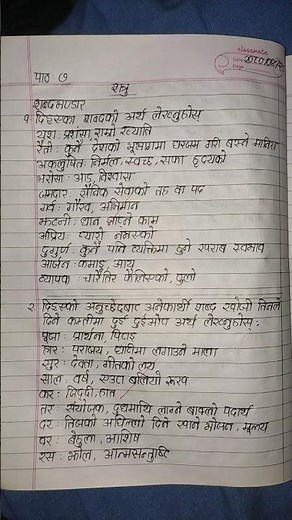 classmate
Date
Page
पाठ ७
शत्रु
शब्दभण्डार
१. दिइएका शब्दको अर्थ लेख्नुहोस्
यश : प्रशंसा, राम्रो ख्याति
रैती : कुनै देशको भूभागमा घरजम गरी बस्ने मानिस
अकलुषित : निर्मल, स्वच्छ, सफा हृदयको
भरोसा : आड, विश्वास
जमदार : सैनिक सेवाको तह वा पद
गर्व : गौरव, अभिमान
झटनी : धान झाट्ने काम
अप्रिय : प्यारो नभएको
दुर्गुण : कुनै पनि व्यक्तिमा हुने खराब स्वभाव
आर्जन : कमाइ, आय
व्यापक : चारैतिर फैलिएको, ठुलो
२. दिइएको अनुच्छेदबाट अनेकार्थी शब्द खोजी तिनले
दिने कम्तीमा दुई दुईओटा अर्थ लेख्नुहोस् :
पूजा : प्रार्थना, पिटाइ
हार : पराजय, घाँटीमा लगाउने माला
सुर : देवता, गीतको लय
साल : वर्ष, एउटा बलियो रूख
कर : जिद्दी, हात
तर : संयोजक, दुधमाथि लाग्ने बाक्लो पदार्थ
दर : तिजको अघिल्लो दिन खाने भोजन, मूल्य
वर : बेहुला, आशिष
रस : झोल, आत्मसन्तुष्टि